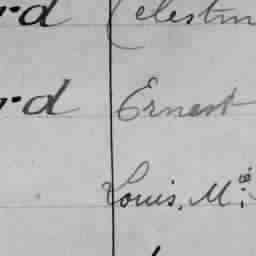 rd Celestin
rd Ernest
Louis, M.ie